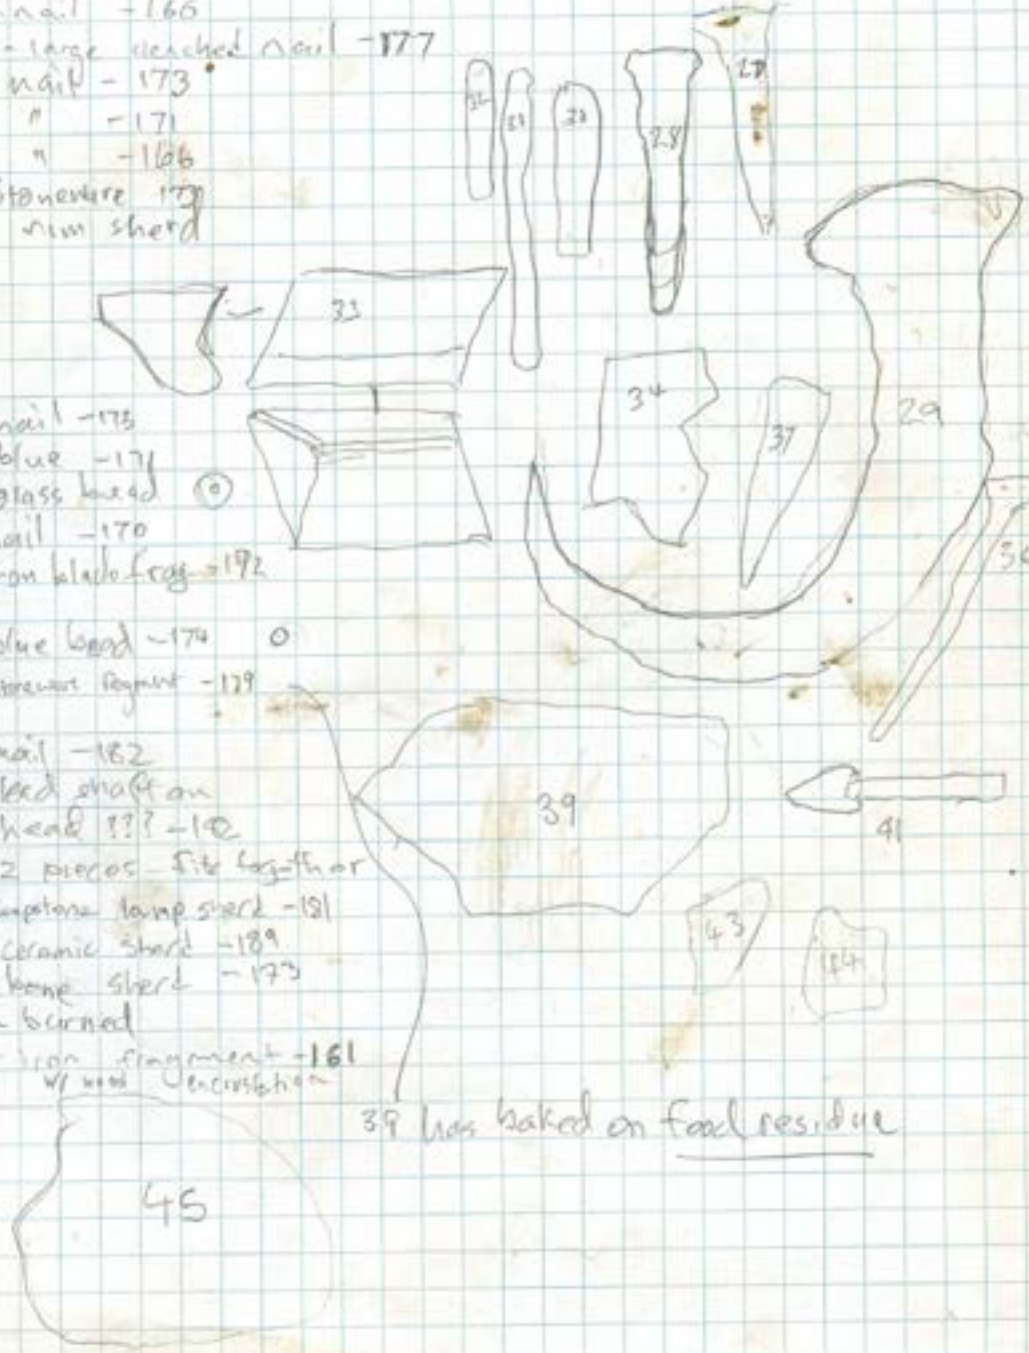 nail - 166
- large clenched nail - 177
nail - 173
" - 171
" - 166
stoneware 170
rim sherd
32
31
30
28
27
33
34
37
29
36
nail - 173
blue - 171
glass bead
nail - 170
iron blade frag - 192
blue bead - 174
stoneware fragment - 179
nail - 182
shaft on
head ??? - 182
2 pieces - fits together
soapstone lamp sherd - 181
ceramic sherd - 189
bone sherd - 173
burned
iron fragment - 161
w/ wood encrustation
39
41
43
44
39 has baked on food residue
45